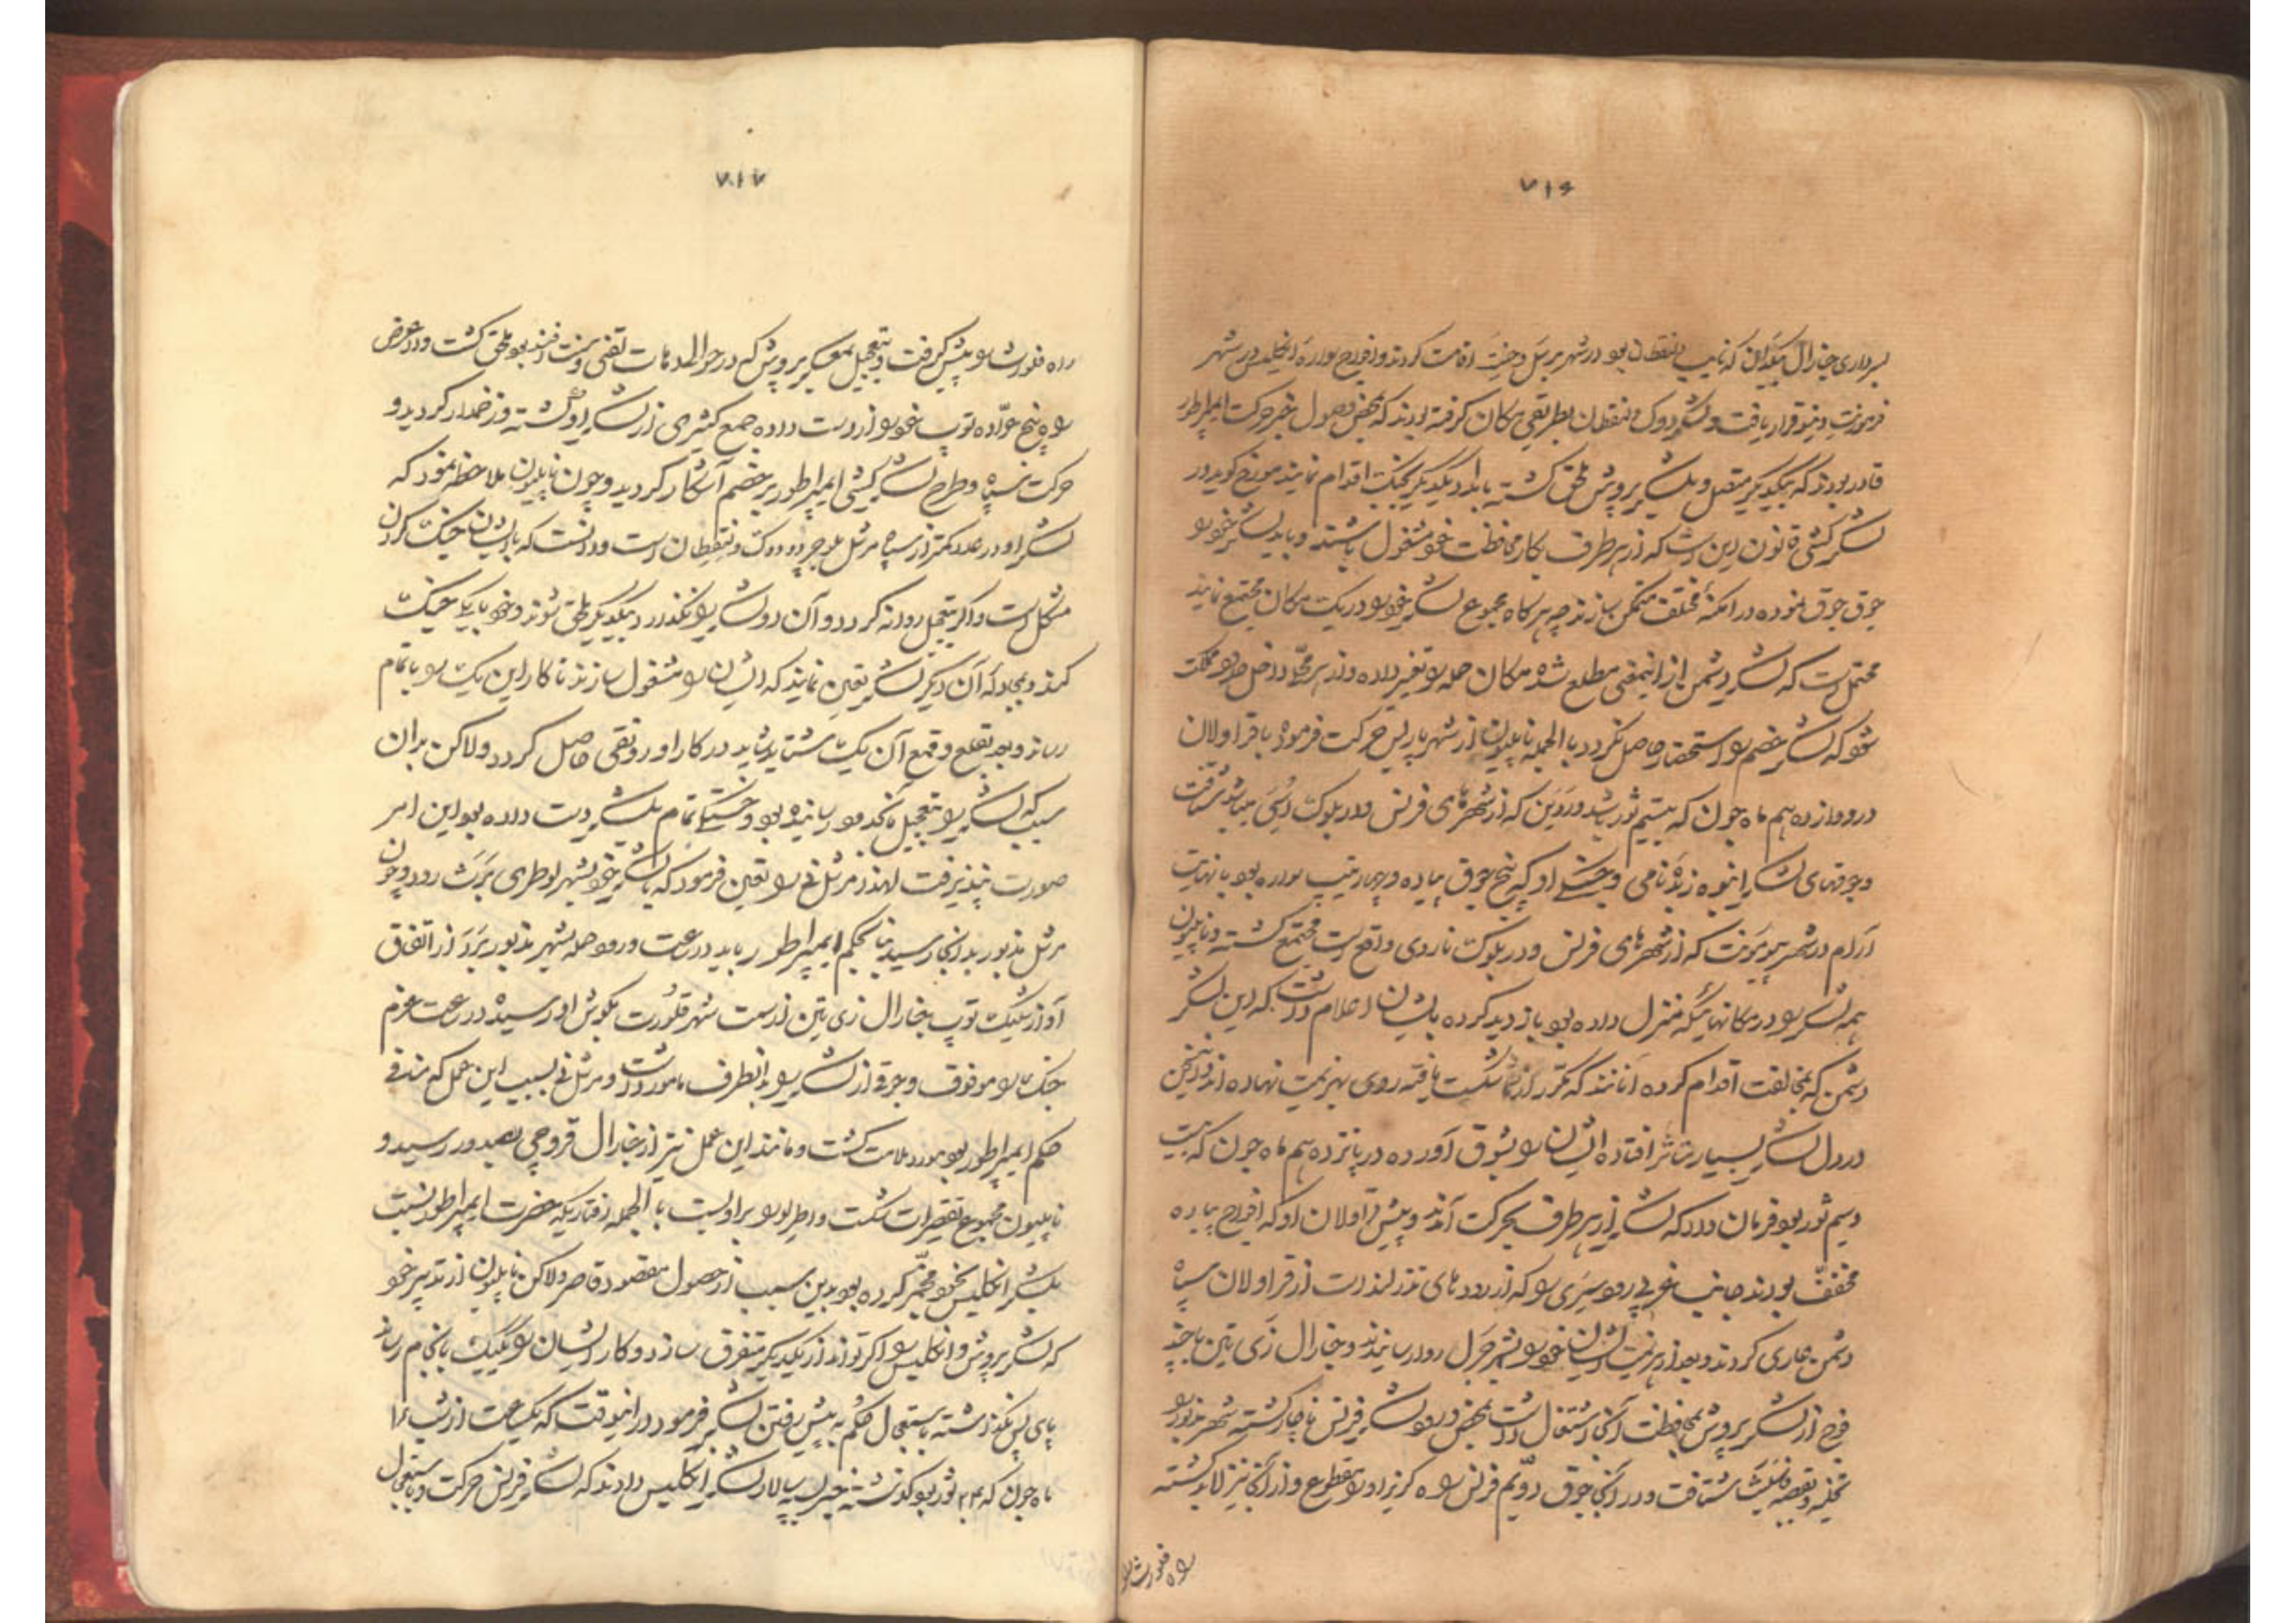 ۷۱۶
بسرداری جنارال که نایب ونقطان بود در شهر و اقامت کردند و افواج سواره انگلیس در شهر
قرار یافت و لشکر دوک ونقطان بطریقی مکان گرفته بودند که بمحض وصول خبر حرکت ایمپراطور
قادر بودند که بیکدیگر متصل و بلشکر پروش ملحق گشته بامداد یکدیگر بجنگ اقدام نمایند مورخ گوید در
لشکر کشی قانون این است که از هر طرف بکار محافظت خود مشغول باشند و باید لشکر خود را
جوق جوق نموده در امکنهٔ مختلف متمکن سازند چه هرگاه مجموع لشکر خود را در یک مکان مجتمع نمایند
محتمل است که لشکر دشمن از اینمعنی مطلع شده مکان حمله را تغییر داده و از سر محل داخل مملکت
شود که لشکر خصم را استحضار حاصل نگردد بالجمله ناپلیون از شهر پاریس حرکت فرموده با قراولان
در دوازدهم ماه جون که بیستم ثور باشد که از شهرهای فرنس و در بلوک میباشد شتافت
و جوقهای لشکر انبوه نامی او که پنج جوق پیاده و چهار تیپ سواره بود با نهایت
آرام در شهر بومونت که از شهرهای فرنس و در بلوک ناردی واقع است مجتمع گشته و ناپلیون
همه لشکر را در مکانهائیکه منزل داده بود بازدید کرده بایشان اعلام داشت که این لشکر
دشمن که بمخالفت اقدام کرده آنانند که مکرر از شما شکست یافته روی بهزیمت نهاده اند و این سخن
در دل لشکر بسیار متاثر افتاده ایشان را بشوق آورده در پانزدهم ماه جون که بیست
و سیم ثور بود فرمان داد که لشکر از هر طرف بحرکت آمدند و پیش قراولان او که افواج پیاده
مخفف بودند جانب غربی رود را که از رودهای ندرلند است از قراولان سپاه
دشمن عاری کردند و بعد از هزیمت ایشان خود را بشهر رسانیدند و جنارال زی تین با چند
فوج از لشکر پروش بمحافظت آنجا اشتغال داشت بمحض ورود لشکر فرنس ناچار گشته شهر مذبور را
تخلیه و بقصبه شتافت و در آنجا جوق دویم فرنس راه گریز او را مقطوع و از آنجا نیز لابد گشته
راه فلورث را
۷۱۷
راه فلورث را پیش گرفت و بتعجیل بمعسکر پروش که در حوالی بود ملحق گشت و در عرض
راه پنج عراده توپ خود را از دست داده جمع کثیری از لشکر او گشته و زخمدار گردید و
حرکت سپاه و طرح لشکر کشی ایمپراطور بر خصم آشکار گردید و چون ناپلیون ملاحظه نمود که
لشکر او در عدد کمتر از سپاه مرشل بلوجر و دوک ونقطان است و دانست که با ایشان جنگ کردن
مشکل است و اگر بتعجیل روانه گردد و آن دو لشکر را نگذارد بیکدیگر ملحق شوند و خود با یکی جنگ
کند و بمجادله آن دیگر لشکر تعین نماید که ایشان را مشغول سازند تا کار این یک را باتمام
رساند و بعد بقلع و قمع آن یک بشتابد شاید در کار او رونقی حاصل گردد ولاکن بدان
سبب که لشکر را بتعجیل بآنحدود رسانیده بود و خستگی تمام بلشکر دست داده بود این امر
صورت نپذیرفت لهذا مرشل نی را تعین فرمود که با لشکر خود بشهر رود و چون
مرشل مذبور بدانجا رسید بنا بحکم ایمپراطور باید در ساعت ورود حمله بشهر مذبور برد از اتفاق
آواز شلیک توپ جنارال زی تین از سمت شهر فلورث بگوش او رسیده در ساعت عزم
جنگ را موقوف و جوقی از لشکر را بدانطرف مامور داشت و مرشل نی بسبب این عمل که منافی
حکم ایمپراطور بود مورد ملامت گشت و مانند این عمل نیز از جنارال بصدور رسید و
ناپلیون مجموع تقصیرات شکست واطرلو را بر او بست بالجمله رفتاریکه حضرت ایمپراطور نسبت
بلشکر انگلیس بخود مخمر کرده بود بدین سبب از حصول مقصود قاصر ولاکن ناپلیون از تدبیر خود
که لشکر پروش و انگلیس را اگر تواند از یکدیگر متفرق سازد و کار ایشان را یک یک بانجام رساند
پای پس نگذاشته باستعجال حکم به پیش رفتن لشکر فرمود در اینوقت که یکساعت از شب
ماه جون که ثور بود گذشته خبر به سپه سالار لشکر انگلیس دادند که لشکر فرنس حرکت و باستعجال